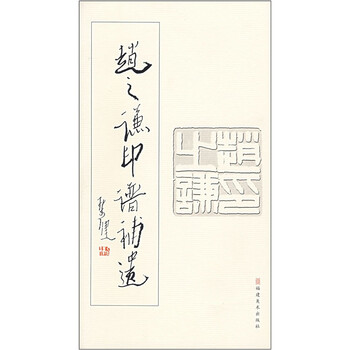 趙之謙印譜補遺
趙之謙印
福建美术出版社